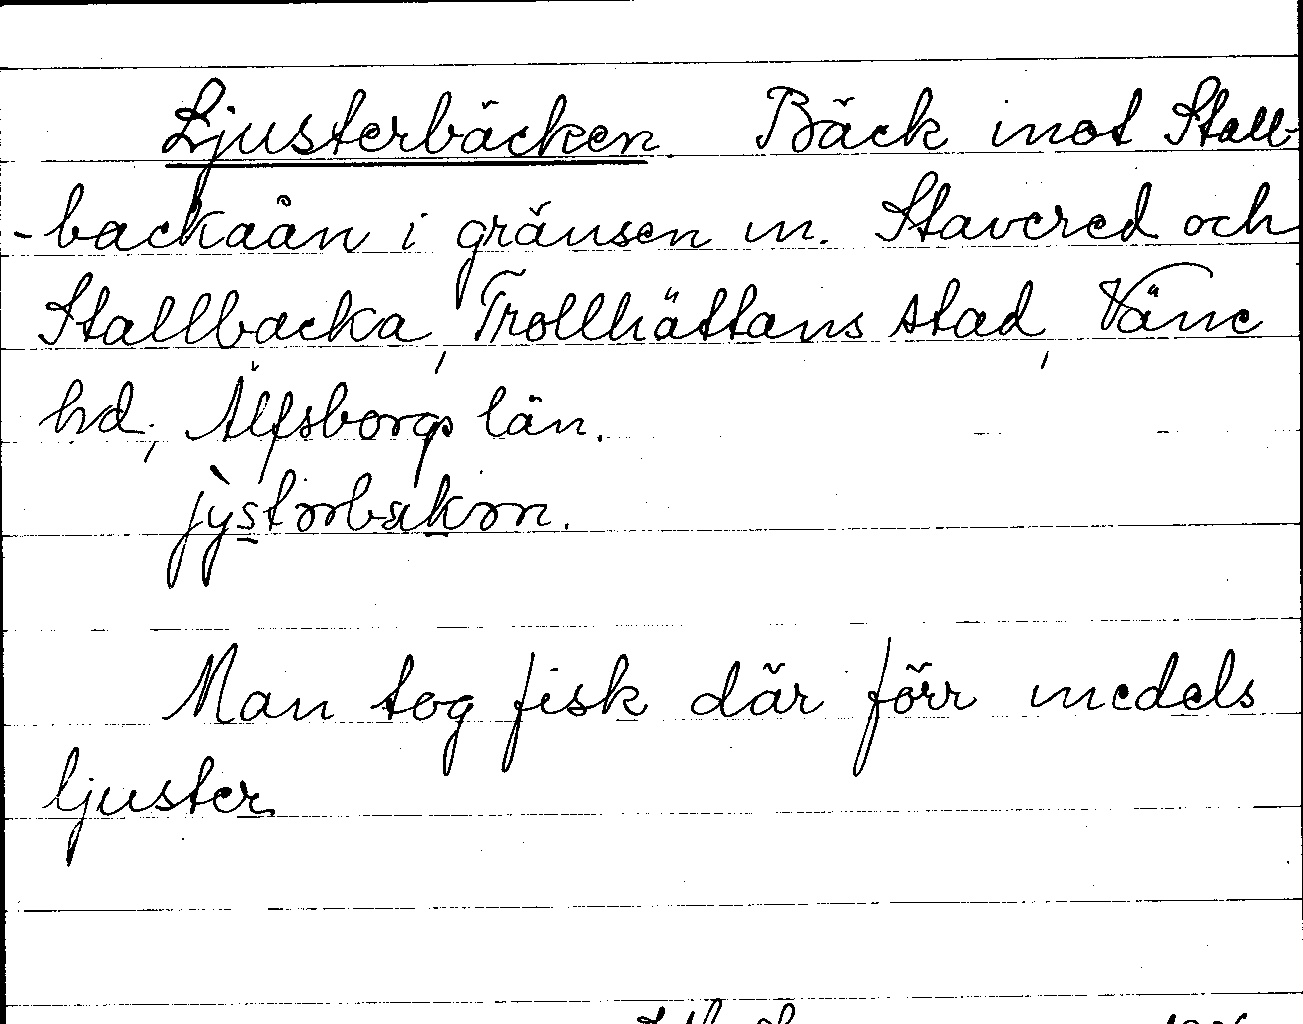 Ljusterbäcken. Bäck inot Stall-
-backaån i gränsen m. Stavered och
Stallbacka, Trollhättans stad, Väne
hd, Älfsborgs län.
jỳstərbäkən.
Man tog fisk där förr medels
ljuster.